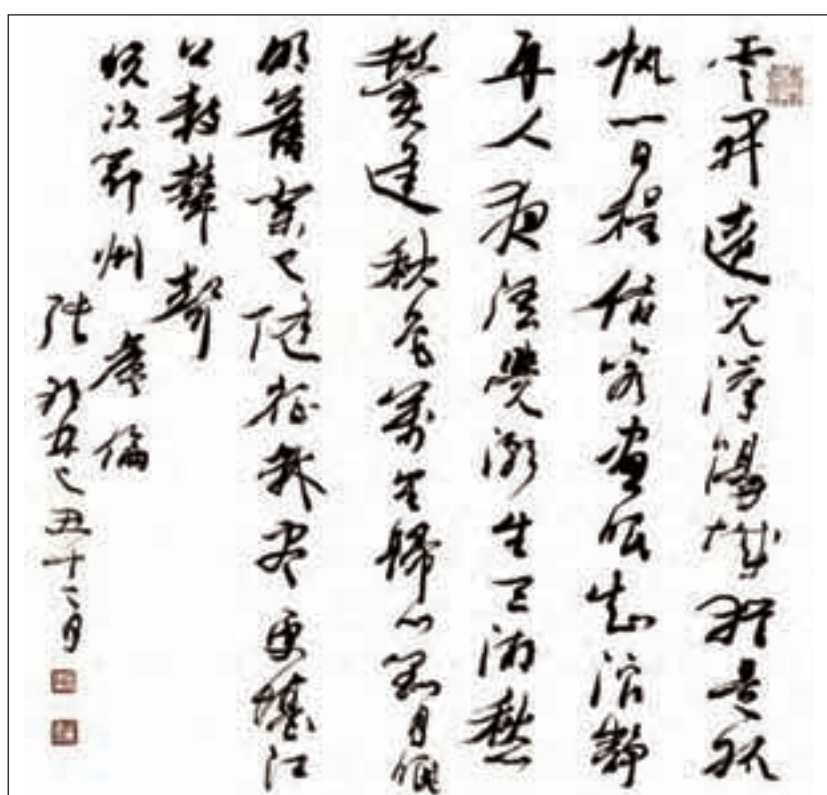 雲開遠見漢陽城猶是孤
帆一日程估客晝眠知浪靜
舟人夜語覺潮生三湘愁
鬢逢秋色萬里歸心對月
明舊業已隨征戰盡更堪江
上鼓鼙聲
晚次鄂州 盧倫
張 己丑十二月